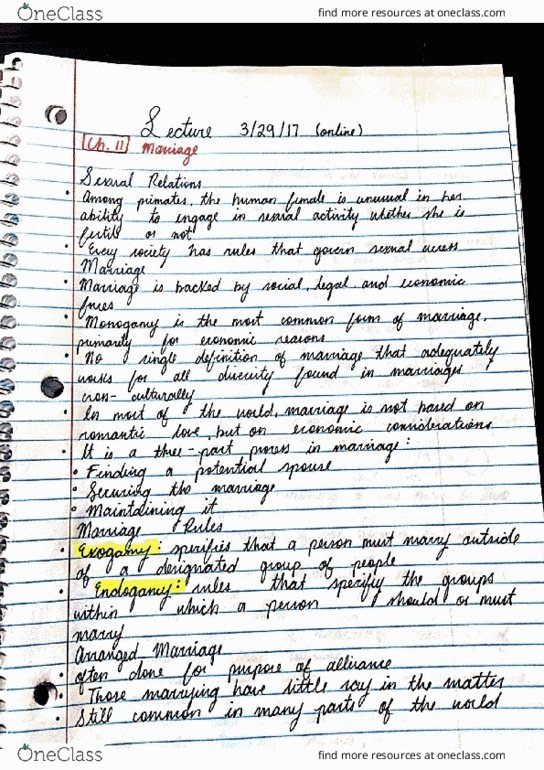 OneClass
find more resources at oneclass.com
Lecture 3/29/17 (online)
Ch. 11 Marriage
Sexual Relations
• Among primates, the human female is unusual in her
ability to engage in sexual activity whether she is
fertile or not
• Every society has rules that govern sexual access
Marriage
• Marriage is backed by social, legal, and economic
forces
• Monogamy is the most common form of marriage,
primarily for economic reasons
• No single definition of marriage that adequately
works for all diversity found in marriages
cross-culturally
• In most of the world, marriage is not based on
romantic love, but on economic considerations
• It is a three-part process in marriage:
• Finding a potential spouse
• Securing the marriage
• Maintaining it
Marriage Rules
• Exogamy: specifies that a person must marry outside
of a designated group of people
• Endogamy: rules that specifiy the groups
within which a person should or must
marry
Arranged Marriage
• often done for purpose of alliance
• Those marrying have little say in the matter
• Still common in many parts of the world
OneClass
find more resources at oneclass.com